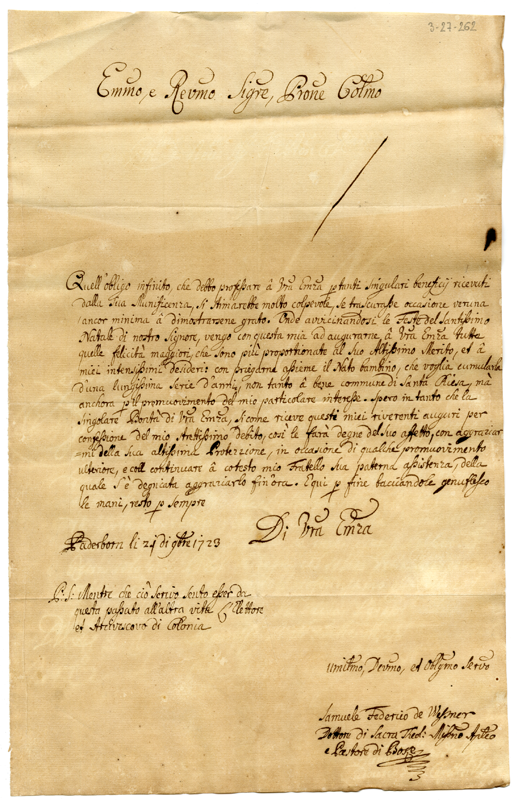 3-27-262
Emmo, e Revmo Sigre, Prone Colmo
Quell'obligo infinito, che debbo professare â Vra Emza p tanti singulari beneficij ricevuti
dalla Sua Munificenza, si stimarebbe molto colpevole, se trascurasse occasione veruna
ancor minima â dimostrarsene grato. Onde avvicinandosi le Feste del Santissimo
Natale di nostro Signore, vengo con questa mia ad augurarne, â Vra Emza tutte
quelle felicità maggiori, che sono più proportionate al Suo Altissimo Merito, et â
miei intensissimi desideri: con pregarne assieme il Nato bambino, che voglia cumularla
d'una lunghissima Serie d'anni, non tanto â bene commune di Santa Chiesa, mà
anchora p il promuovimento del mio particolare interesse. Spero in tanto che la
Singolare Bontà di Vra Emza, si come riceve questi miei riverenti auguri per
confessione del mio Strettissimo debito, così le farà degne del Suo affetto, con aggraziar
-mi della Sua altissima Protezzione, in occasione di qualche promuovimento
ulteriore, e coll continuare â cotesto mio fratello Sua paterna assistenza, della
quale S'è degnata aggraziarlo fin'ora. E qui p fine bacciandole genuflesso
le mani, resto p sempre
Di Vra Emza
Paderborn li 24 di 9bre 1723
P: S: Mentre che ciò scrivo sento esser da
questa passato all'altra vita l'Elettore
et Arcivescovo di Colonia
Umilmo, Devmo, et Obligmo Servo
Samuele Federico de
Dottore di Sacra Teol: Missrio Aplico
e Pastore di